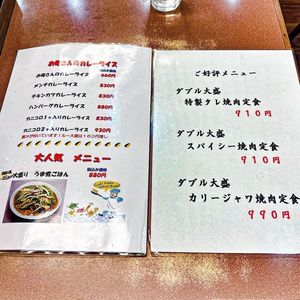 お母さんのカレーライス
税込み価格
お母さんのカレーライス 660円
メンチカレーライス 830円
チキンカツカレーライス 830円
ハンバーグカレーライス 880円
カニコロ1ヶ入りカレーライス 830円
カニコロ2ヶ入りカレーライス 930円
大人気 メニュー
大盛り うま煮ごはん
税込み価格
880円
ご好評メニュー
ダブル大盛
特製タレ焼肉定食
910円
ダブル大盛
スパイシー焼肉定食
910円
ダブル大盛
カリージャワ焼肉定食
990円